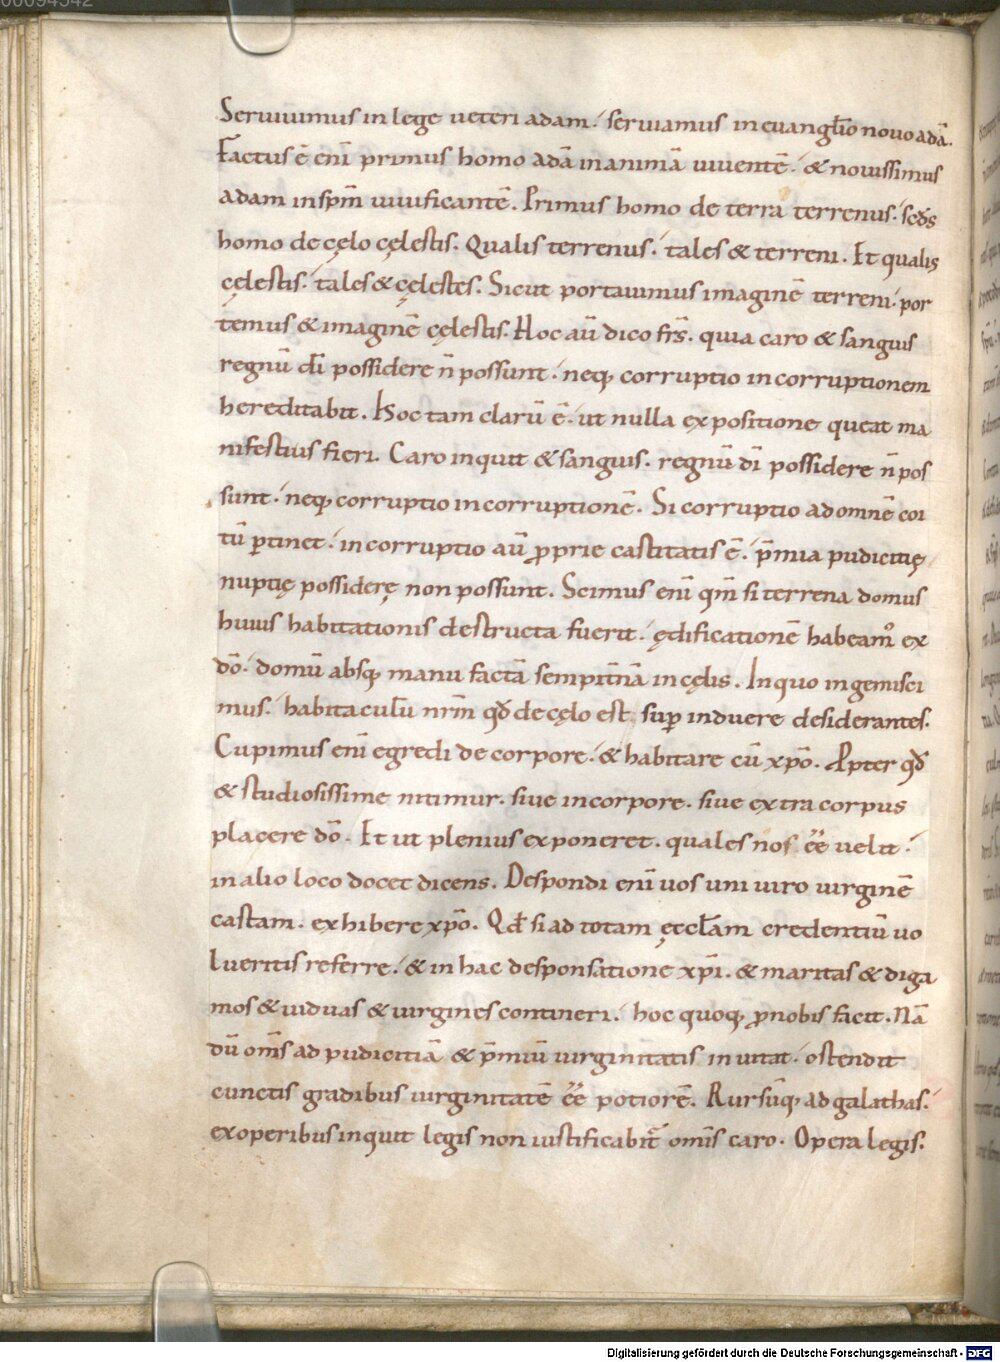 00094542
Seruiuimus in lege ueteri adam·́ seruiamus in euanglīo nouo adā.
Factus ē enī primus homo adā in animā uiuentē·́ & nouissimus
adam in spm̄ uiuificantē. Primus homo de terra terrenus·́ secd̄s
homo de cęlo cęlestis. Qualis terrenus·́ tales & terreni. Et qualis
cęlestis·́ tales & cęlestes. Sicut portauimus imaginē terreni·́ por
temus & imaginē cęlestis. Hoc aū dico frs̄. quia caro & sanguis
regnū dī possidere n̄ possunt·́ neq; corruptio incorruptionem
hereditabit. Hoc tam clarū ē·́ ut nulla expositione queat ma
nifestius fieri. Caro inquit & sanguis. regnū dī possidere n̄ pos
sunt·́ neq; corruptio incorruptionē. Si corruptio ad omnē coi
tū ꝑtinet·́ incorruptio aū ꝓprie castitatis ē·́ p̄mia pudicitię
nuptię possiderę non possunt. Scimus enī qm̄ si terrena domus
huius habitationis destructa fuerit·́ ędificationē habeam᾿ ex
dō·́ domū absq; manu factā sempit̄nā in cęlis. In quo ingemisci
mus·́ habitaculū nrm̄ qd̄ de cęlo est, suꝑinduere desiderantes.
Cupimus enī egredi de corpore·́ & habitare cū xp̄o. Ꝓpter qd̄
& studiosissime nitimur. siue in corpore. siue extra corpus
placere dō. Et ut plenius exponeret. quales nos eē uelit·́
in alio loco docet dicens. Despondi enī uos uni uiro uirginē
castam. exhibere xp̄o. Qd̄ si ad totam ęccłam credentiū uo
lueritis referre·́ & in hac desponsatione xp̄i. & maritas & diga
mos & uiduas & uirgines contineri·́ hoc quoq; ꝓ nobis facit. Nā
dū om̄s ad pudicitiā & p̄miū uirginitatis inuitat·́ ostendit
cunctis gradibus uirginitatē eē potiorē. Rursūq; ad galathas·́
ex operibus inquit legis non iustificabit̄ om̄is caro. Opera legis·́
Digitalisierung gefördert durch die Deutsche Forschungsgemeinschaft - DFG